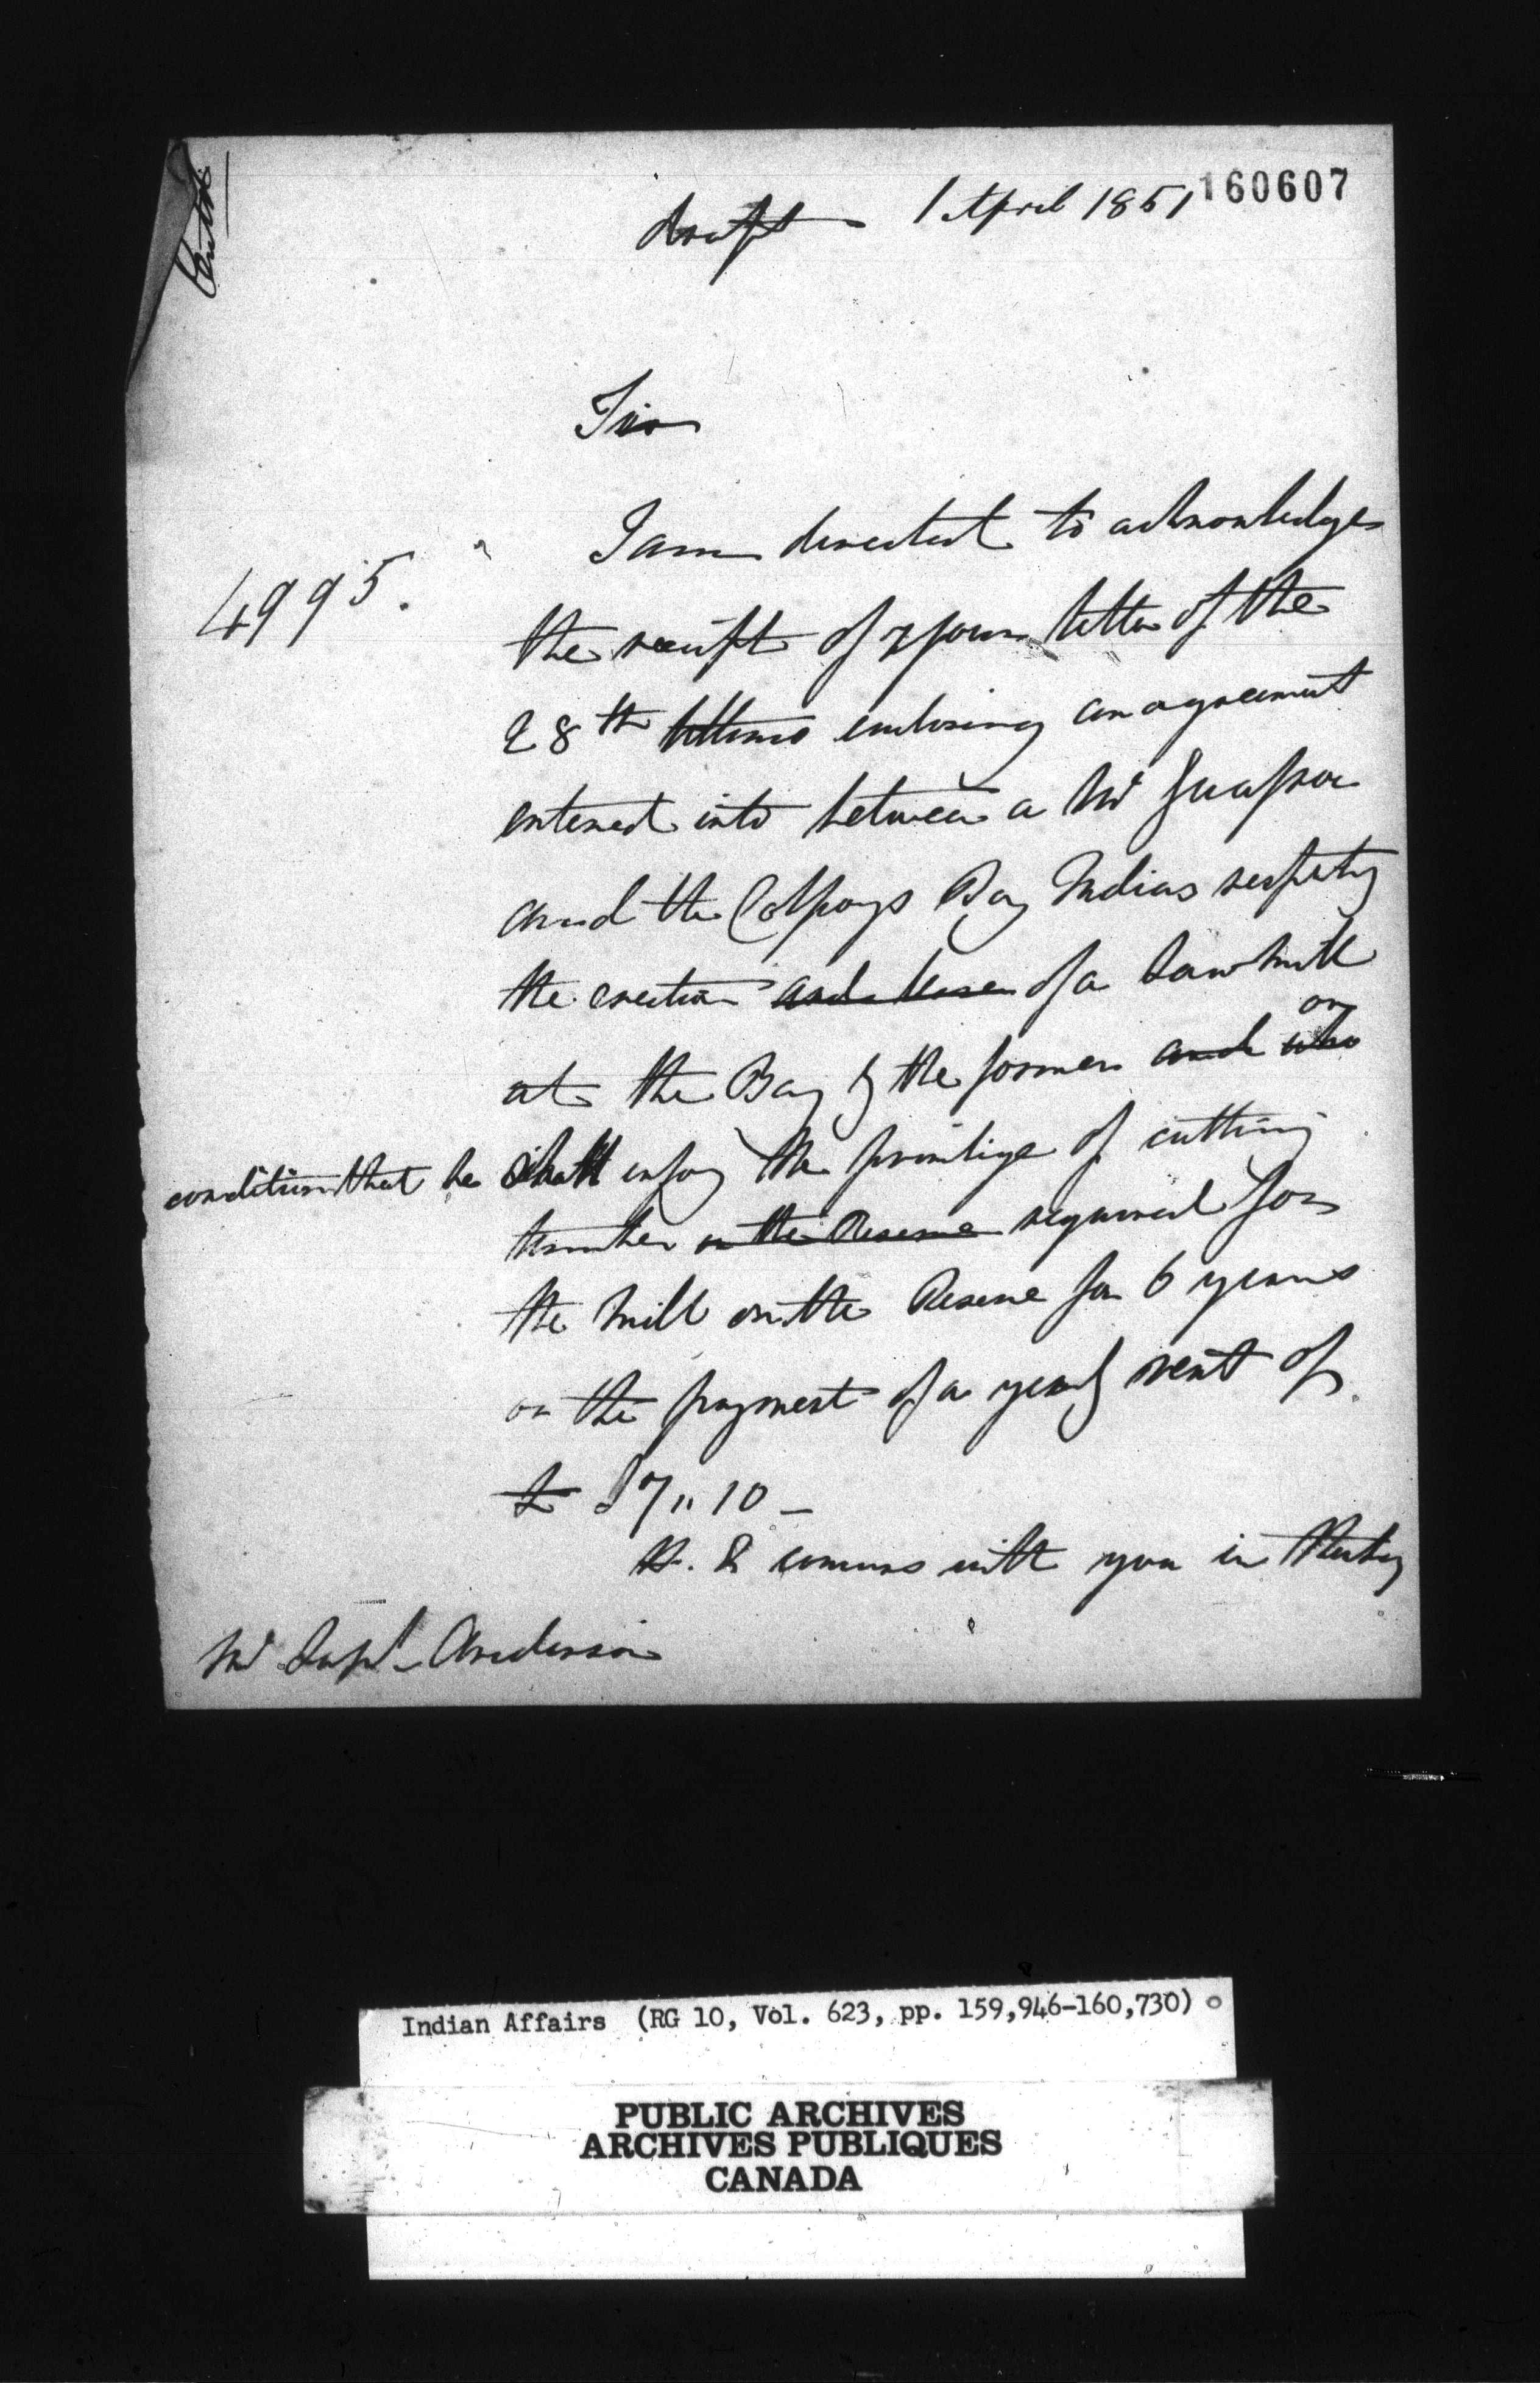 Entd
draft 1 April 1851 160607
Sir
I am directed to acknowledge
4995. the receipt of your letter of the
28th Ultimo enclosing an agreement
entered into between a Mr
and the Colpoys Bay Indians respecting
the erection and lease of a Saw mill
on
at the Bay by the former and who
condition that he shall enjoy the privilege of cutting
timber on the Reserve required for
the Mill on the Reserve for 6 years
on the payment of a yearly rent of
£ £7,, 10 –
H. E concurs with you in
Mr Supt Anderson
Indian Affairs (RG 10, Vol. 623, pp. 159,946-160,730)
PUBLIC ARCHIVES
ARCHIVES PUBLIQUES
CANADA